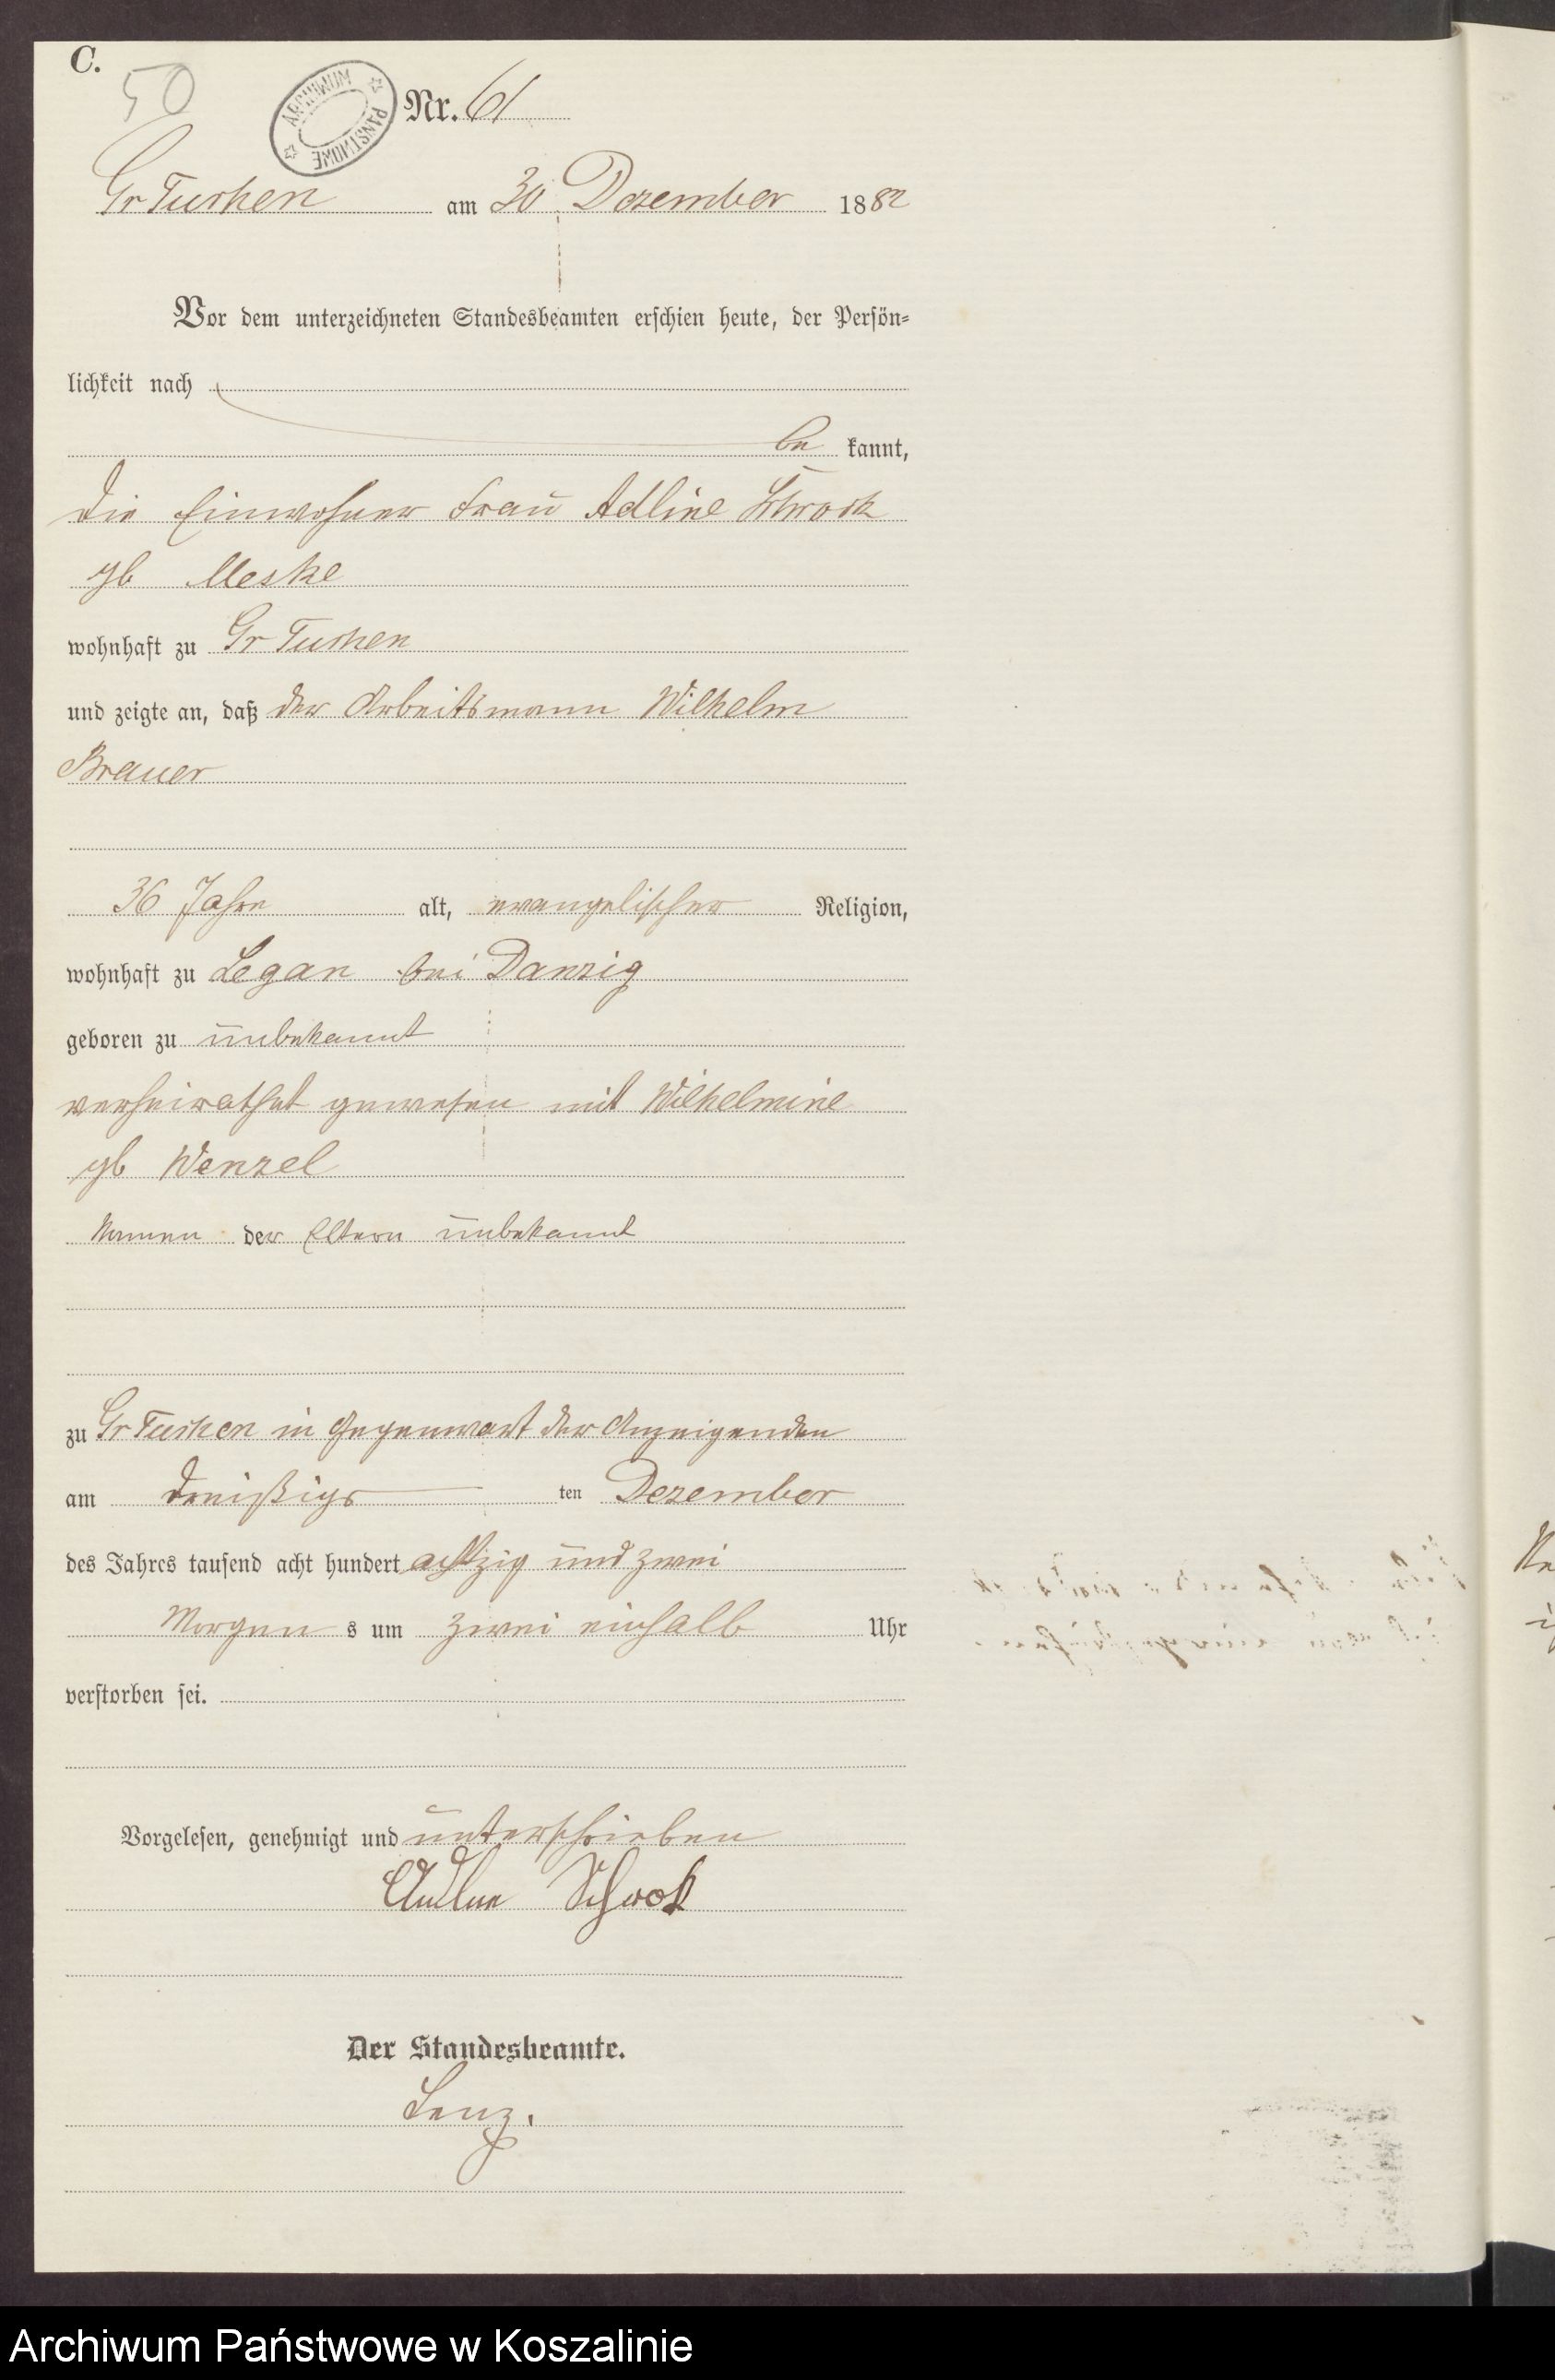 C.
50
ARCHIWUM PAŃSTWOWE
Nr. 61
Gr Tuchen am 30 Dezember 1882
Vor dem unterzeichneten Standesbeamten erschien heute, der Persön-
lichkeit nach
be kannt,
die Einwohner Frau Adline Schrock
gb Meske
wohnhaft zu Gr Tuchen
und zeigte an, daß der Arbeitsmann Wilhelm
Brauer
36 Jahre alt, evangelischer Religion,
wohnhaft zu Legan bei Danzig
geboren zu unbekannt
verheirathet gewesen mit Wilhelmine
gb Wenzel
Namen der Eltern unbekannt
zu Gr Tuchen in Gegenwart der Anzeigenden
am dreißigs ten Dezember
des Jahres tausend acht hundert achtzig und zwei
Morgen s um zwei einhalb Uhr
verstorben sei.
Vorgelesen, genehmigt und unterschrieben
Der Standesbeamte.
Lenz.
Archiwum Państwowe w Koszalinie